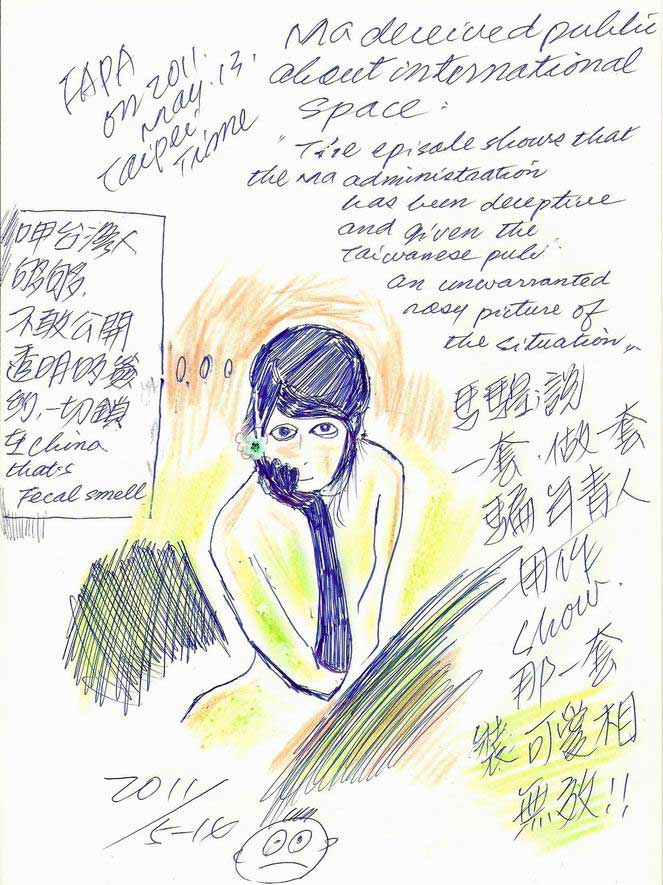 FAPA
on 2011.
May.13.
Taipei
Time
Ma deceived public
about international
space:
"The episode shows that
the Ma administration
has been deceptive
and given the
Taiwanese publ
an unwarranted
rosy picture of
the situation"
呷台灣人
够够,
不敢公開
透明的簽
約,一切鎖
在china
that's
Fecal smell
說
一套.做一套
騙年青人
用作
show.
那一套
裝可愛相
無效!!
2011/5-14